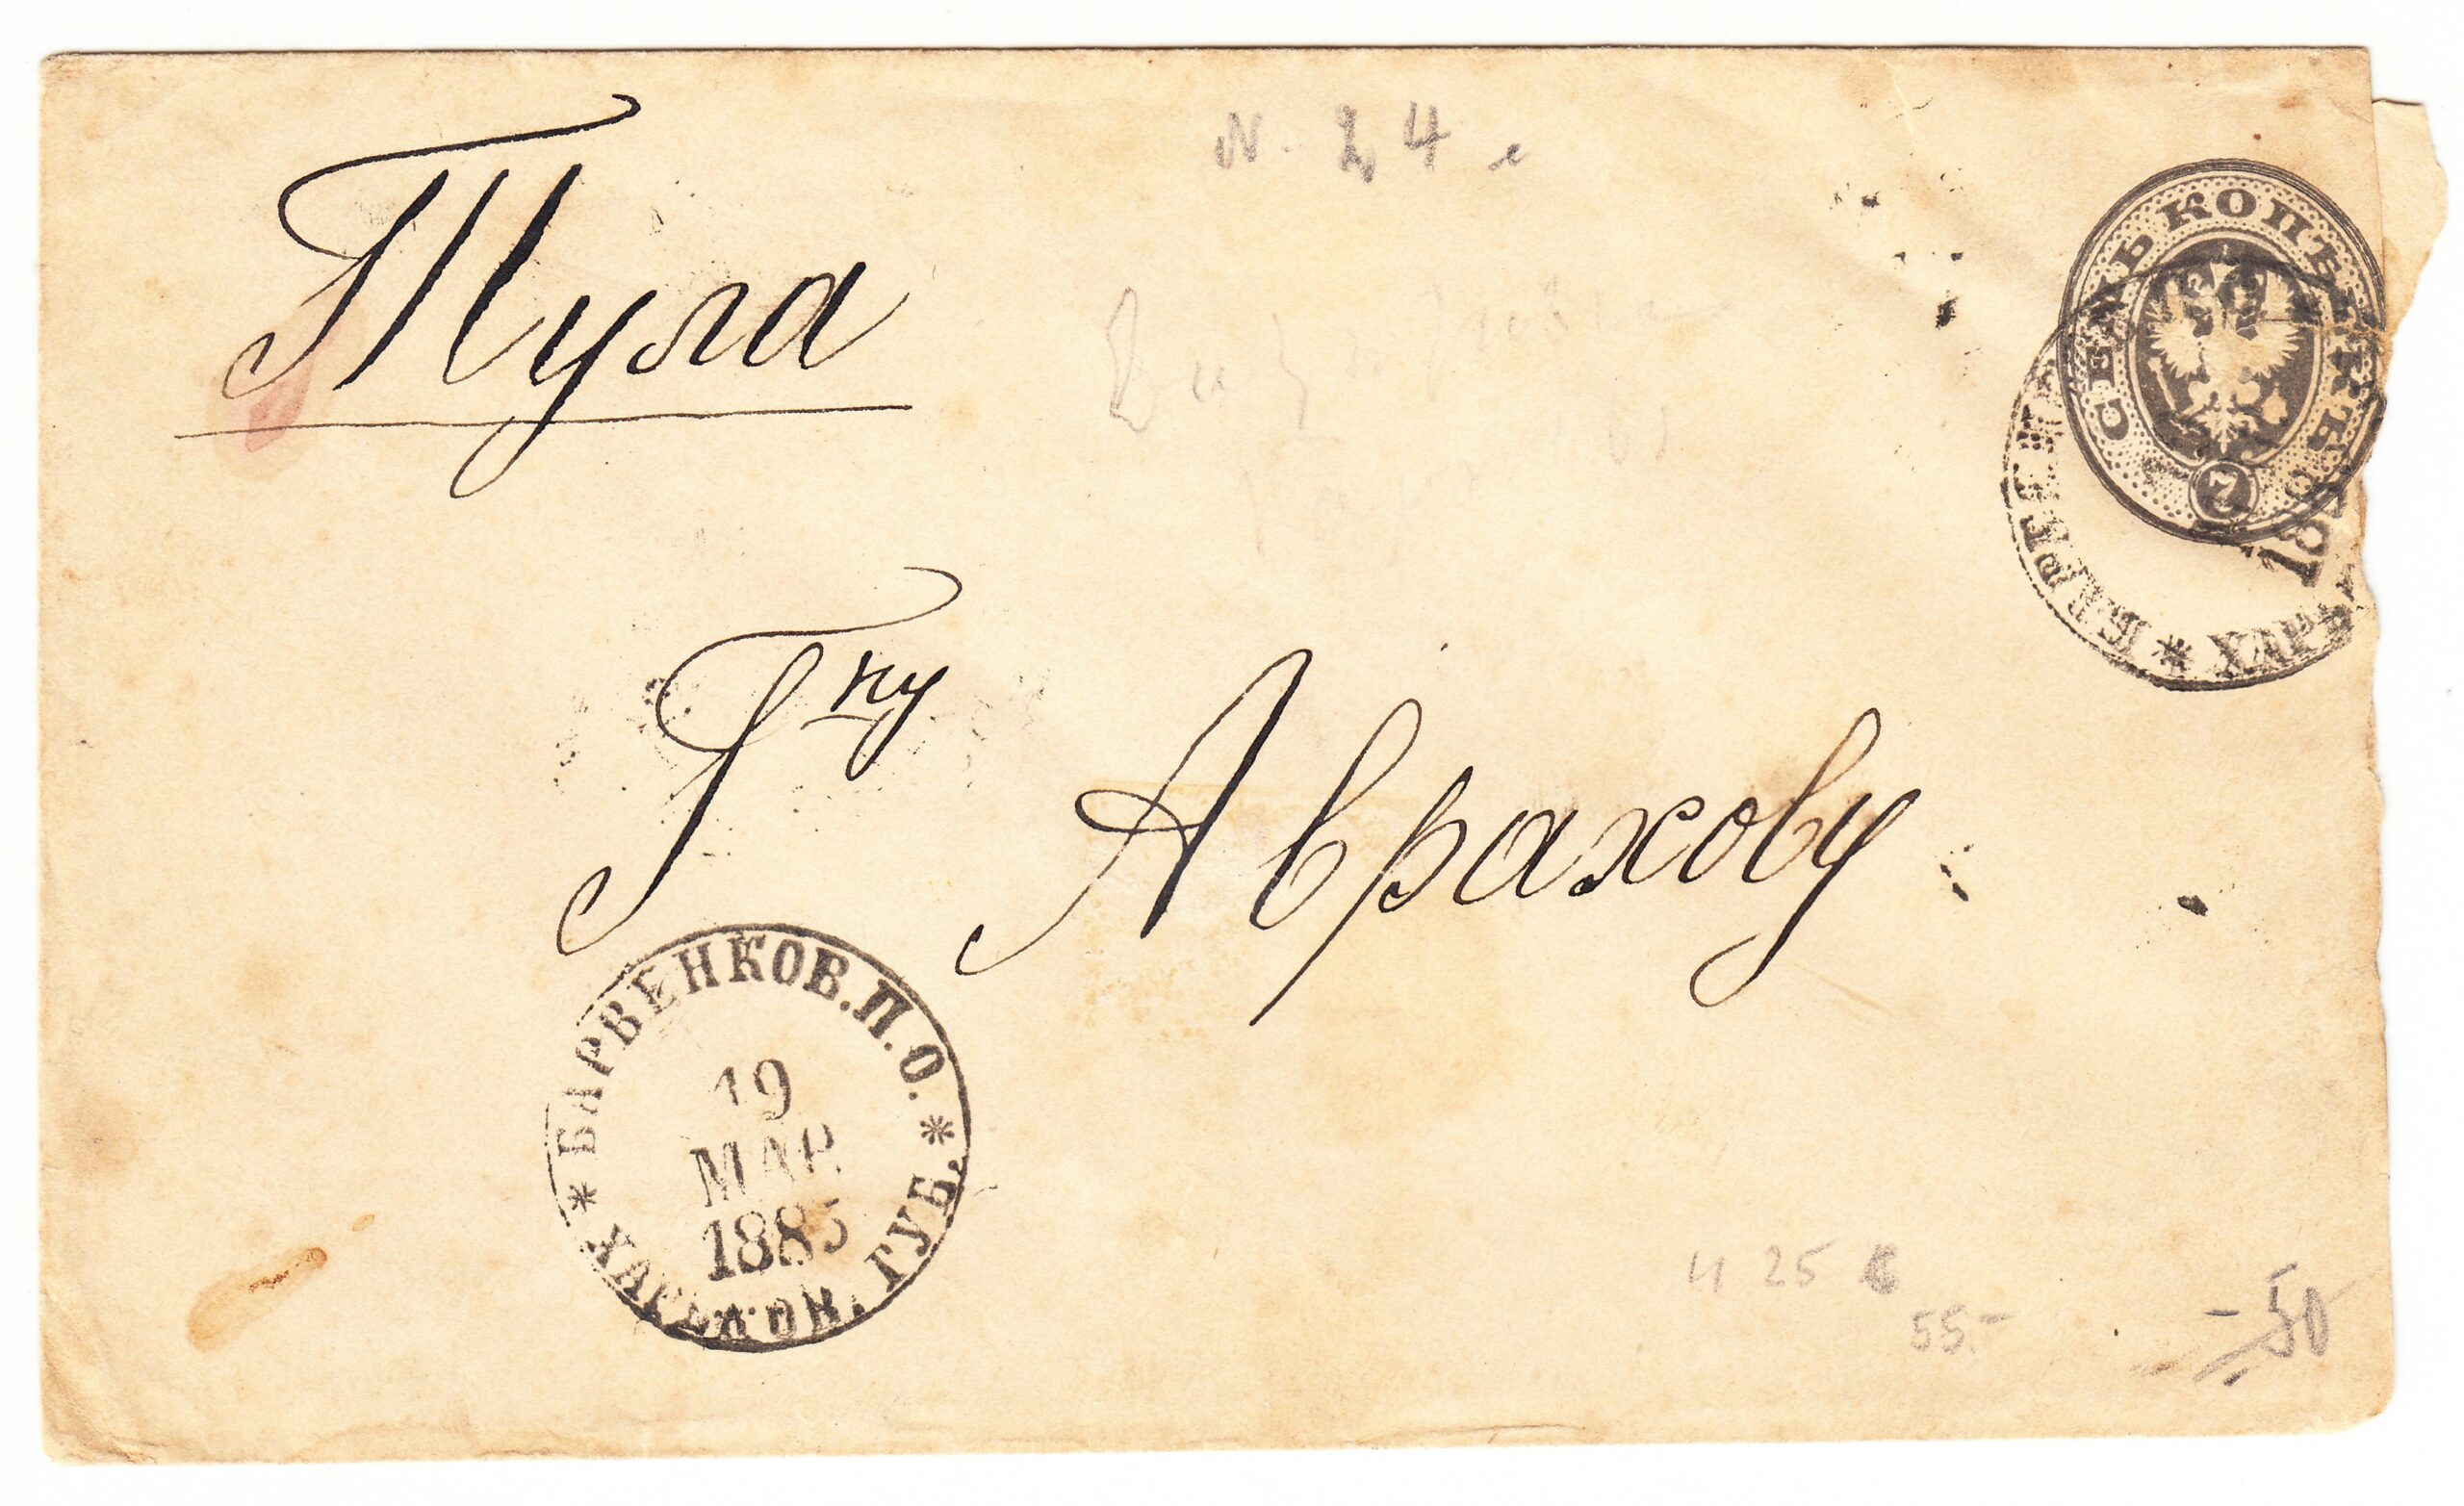 N. 24
Тула
СЕМЬ КОПѢЕКЪ
7
Г пу Аврахову
БАРВЕНКОВ. П. О.
19
МАР
1885
ХАРЬКОВ. ГУБ.
4 25
55.-
-50